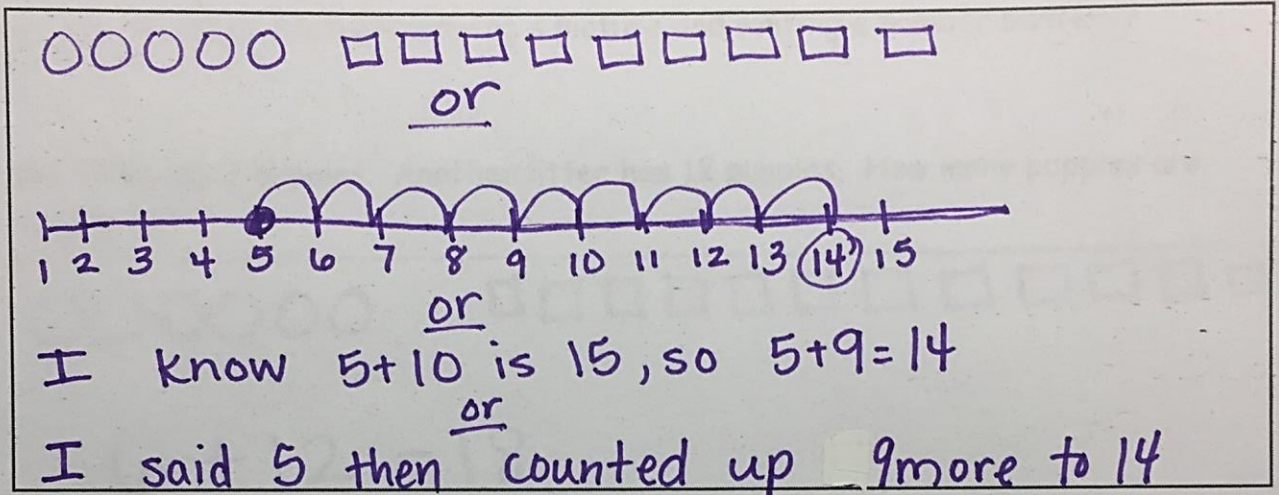 or
1 2 3 4 5 6 7 8 9 10 11 12 13 14 15
or
I know 5+10 is 15, so 5+9=14
or
I said 5 then counted up 9more to 14